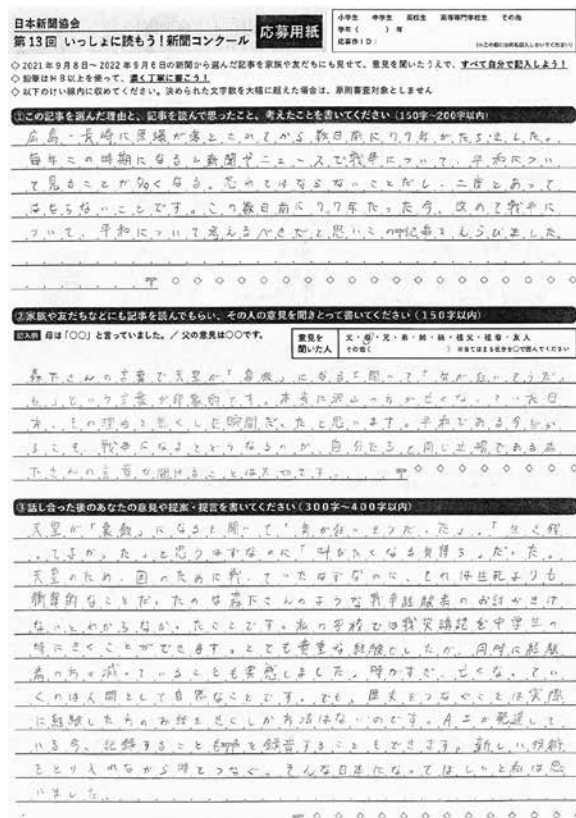 日本新聞協会
第13回 いっしょに読もう!新聞コンクール 応募用紙
小学生 中学生 高校生 高等専門学校生 その他
学年( )年
応募作ID:
◇2021年9月8日~2022年9月6日の新聞から選んだ記事を家族や友だちにも見せて、意見を聞いたうえで、すべて自分で記入しよう!
◇鉛筆はHB以上を使って、濃く丁寧に書こう!
◇以下のけい線内に収めてください。決められた文字数を大幅に超えた場合は、原則審査対象としません
①この記事を選んだ理由と、記事を読んで思ったこと、考えたことを書いてください(150字~200字以内)
広島・長崎に原爆が落とされてから数日前に77年がたちました。
毎年この時期になると新聞やニュースで戦争について、平和につい
て見ることが多くなる。忘れてはならないことだし、二度とあって
はならないことです。この数日前に77年たった今、改めて戦争に
ついて、平和について考えるべきだと思いこの記事をえらびました。
②家族や友だちなどにも記事を読んでもらい、その人の意見を聞きとって書いてください(150字以内)
記入例 母は「○○」と言っていました。/父の意見は○○です。
意見を聞いた人
父・母・兄・弟・姉・妹・祖父・祖母・友人
その他( ) ※当てはまる部分を○で囲んでください
森下さんの言葉で天皇が「象徴」になると聞いて「気が狂いそうだっ
た」という言葉が印象的です。本当に沢山の方が亡くなっていた日
本、その理由を無くした瞬間だったと思います。平和である今だか
らこそ、戦争になるとどうなるのか、自分たちと同じ立場である森
下さんの言葉が聞けることは大切です。
③話し合った後のあなたの意見や提案・提言を書いてください(300字~400字以内)
天皇が「象徴」になると聞いて「気が狂いそうだった」、「生き残
ってよかった」と思うはずなのに「叫びたくなる気持ち」だった。
天皇のため、国のために戦っていたはずなのに、それは生死よりも
衝撃的なことだったのは森下さんのような戦争経験者のお話がきけ
ないとわからなかったことです。私の学校では戦災講話を中学生の
時にきくことができます。とても貴重な経験でしたが、同時に経験
者の方が減っていることも実感しました。時がすぎ、亡くなってい
くのは人間として自然なことです。でも、歴史をつなぐことは実際
に経験した方のお話をきくしか方法はないのです。AIが発達して
いる今、記録することも録音することもできます。新しい技術
をとり入れながら時をつなぐ。そんな日本になってほしいと私は思
いました。